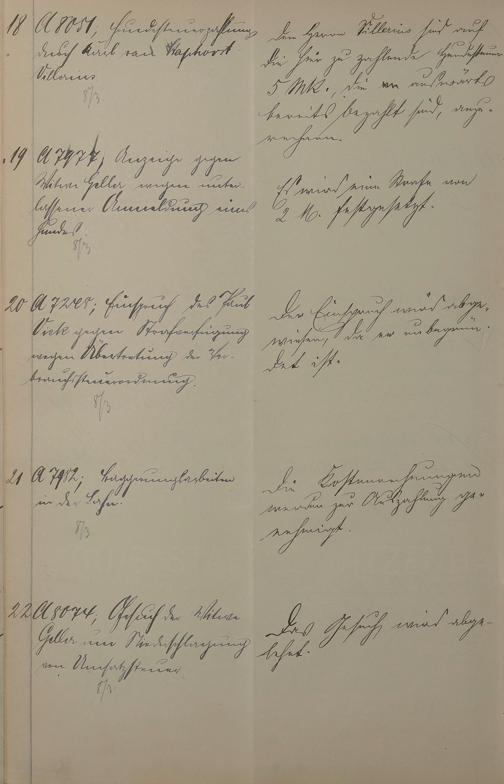 18 A 8051, Hundesteuerzahlung
durch Karl van
Villarius
8/3
Dem Herrn Villarius sind auf
die hier zu zahlende Hundesteuer
5 Mk., die er auswärts
bereits bezahlt sind, anzu-
rechnen.
19 A 7974, Anzeige gegen
Witwe Geller wegen unter-
lassener Anmeldung eines
Hundes.
8/3
Es wird eine Strafe von
2 M. festgesetzt.
20 A ; Einspruch des Paul
Sirk gegen Strafverfügung
wegen Übertretung der Ver-
brauchssteuerordnung.
8/3
Der Einspruch wird abge-
wiesen, da er unbegrün-
det ist.
21 A 7982; Baggerungsarbeiten
in der Lahn.
8/3
Die Kostenrechnungen
werden zur Auszahlung ge-
nehmigt.
22 A 8074, Gesuch der Witwe
Geller um Niederschlagung
von Umsatzsteuer.
8/3
Das Gesuch wird abge-
lehnt.